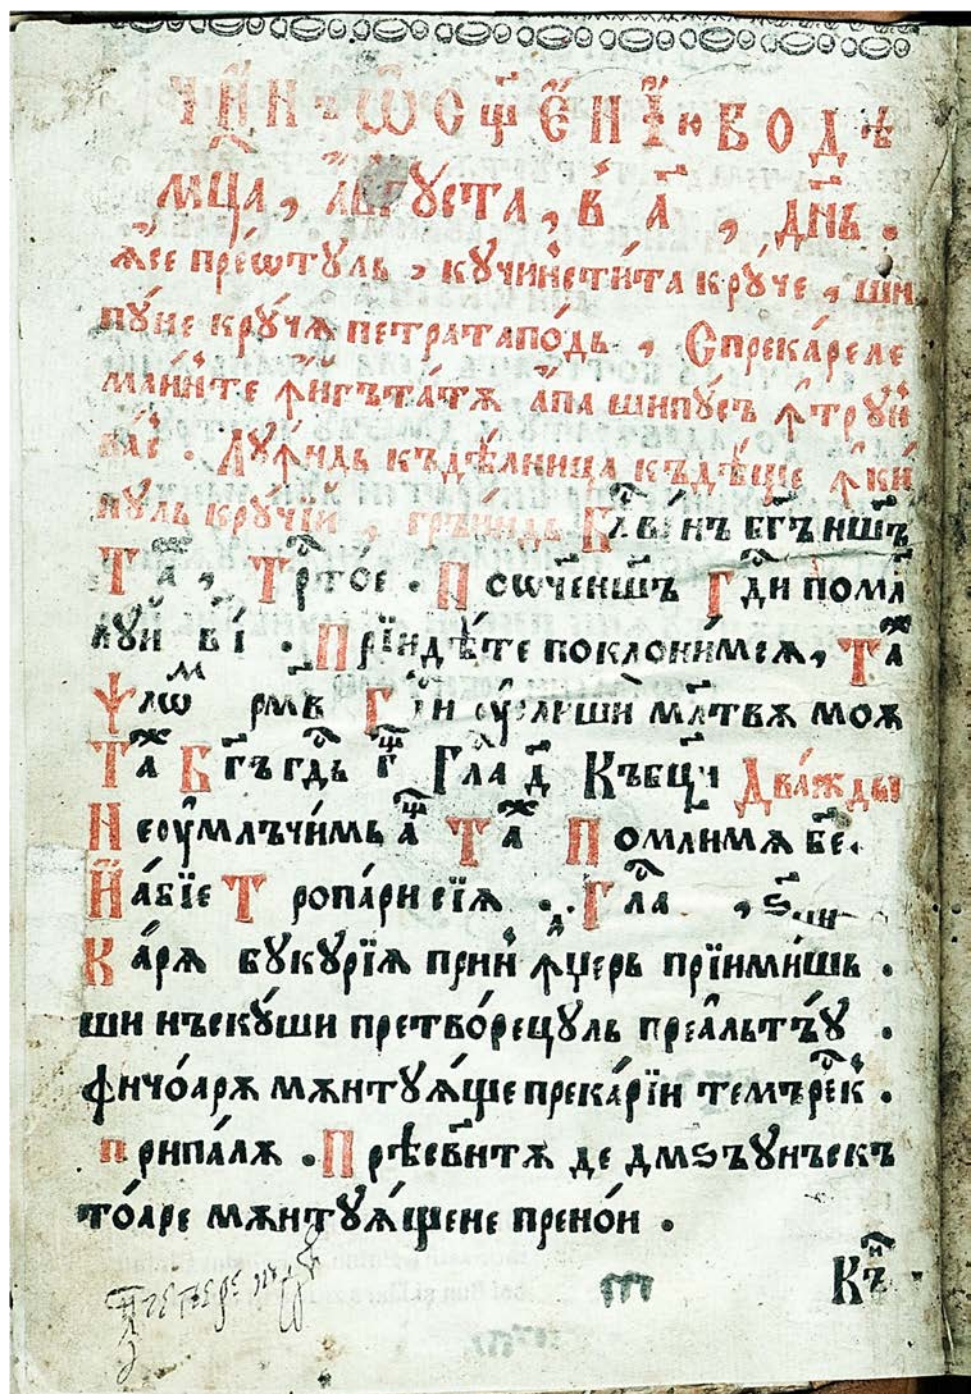 чи́нъ ѿсщ҃е́нїю водѣ
мц҃а, а́вгꙋста, в а҃, дн҃ь.
ꙗ҆се пре́ѡтꙋль, кꙋчи́нсти́та крꙋ́че, ши
пꙋ́не крꙋ́чѫ петратапо́дь, Спрека́реле
мли́нте ꙟ҆нгъта́тѫ а҆па шипꙋ́съ ꙟ҆трꙋн
ва́с. Лꙋѡ҆ндь къдѣ́лница къдѣ́ще ꙟ҆кн
нꙋль крꙋ́чїй, грѣи́ндь Бл҃ве́нъ бг҃ъ ншъ҃
Та, Трто́е. Посѡч҃еншъ҃ Гд҃и помл
лꙋй в҃і. Прїидѣ́те поклони́мсѧ, Та
Ѱлѡм рм҃в Гд҃и оу҆слиши мл҃твѫ моѫ
Таж Бг҃ъ гд҃ь г҃щ Гла д҃ Къбц҃и Два́жды
Неоу҆млъчи́мь а҆щ Таж Помлимѧ бе҃.
Й а́бїе Тропа́ри сїѧ. Гла, ѕ҃
Ка́рѫ бꙋкꙋрїѧ прин ꙟ҆џерь прїими́шь.
ши нъскꙋ́ши претво́рецꙋль преа̂льтъ́ꙋ.
фичо́арѫ мѫнтꙋѧ́ще прека́рїи темърѐск.
припа́лѫ. Прѣсв҃нтѫ де дмѕъꙋнъскъ
то́аре мѫнтꙋѧ́щене прено́и.
Къ҆н